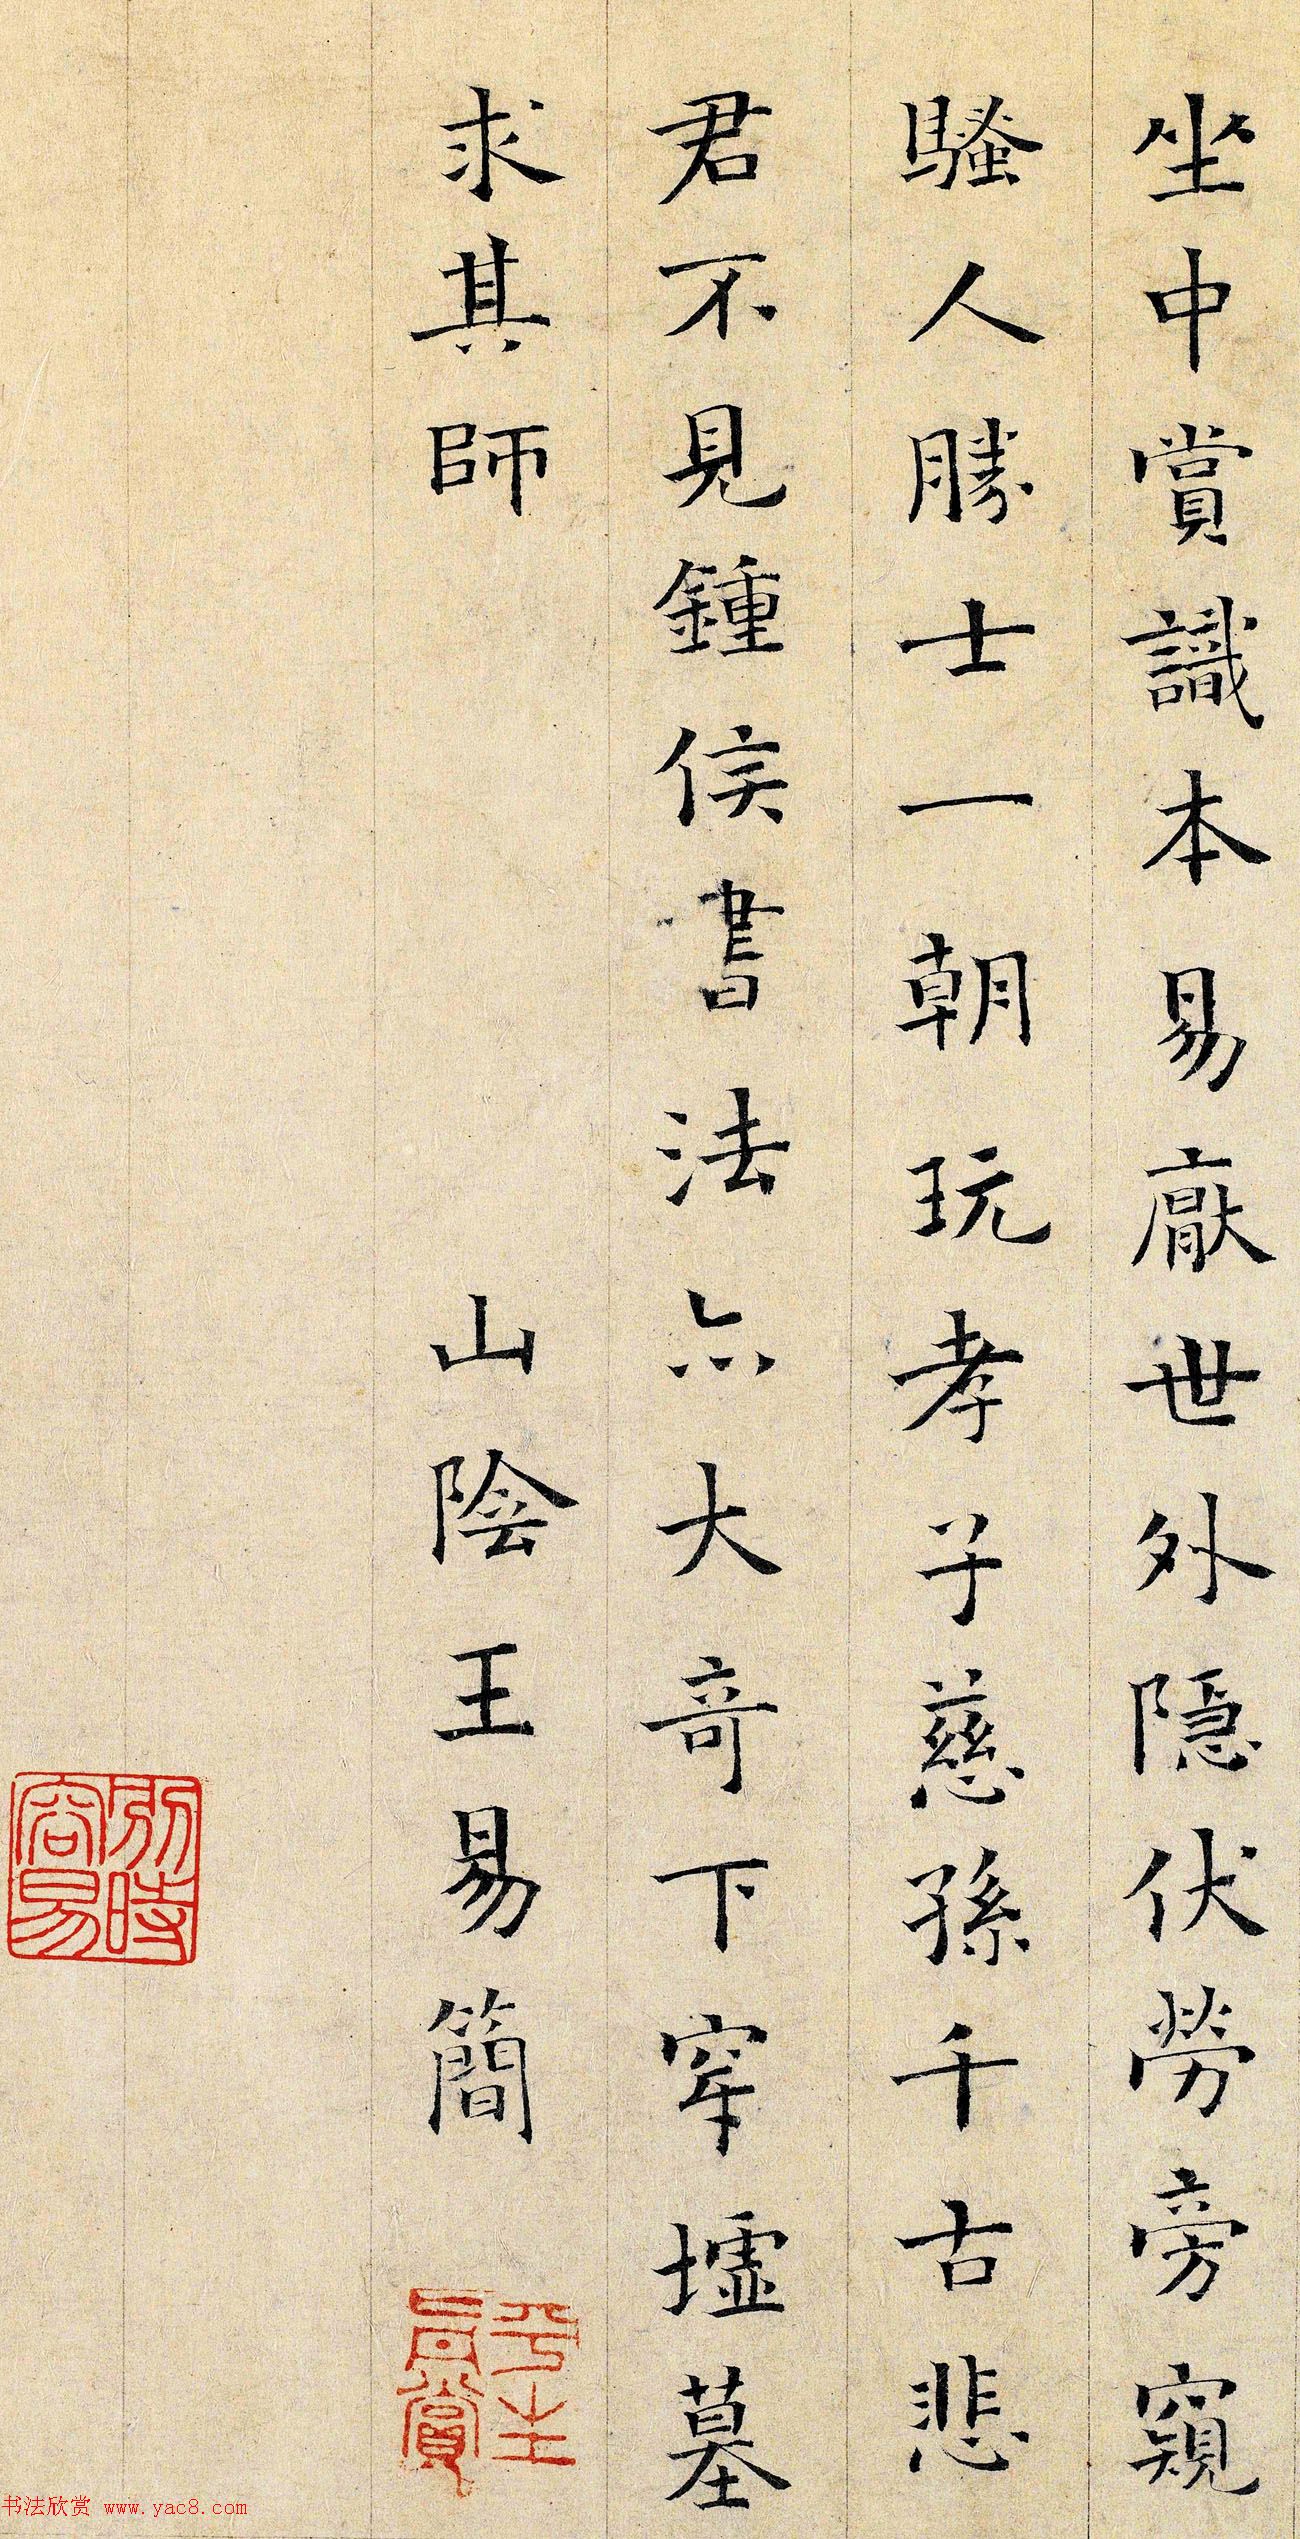 坐中賞識本易厭世外隱伏勞旁窺
騷人勝士一朝玩孝子慈孫千古悲
君不見鍾侯書法亦大奇下穿墟墓
求其師
山陰王易簡
平生
真賞
別時
容易
书法欣赏 www.yac8.com